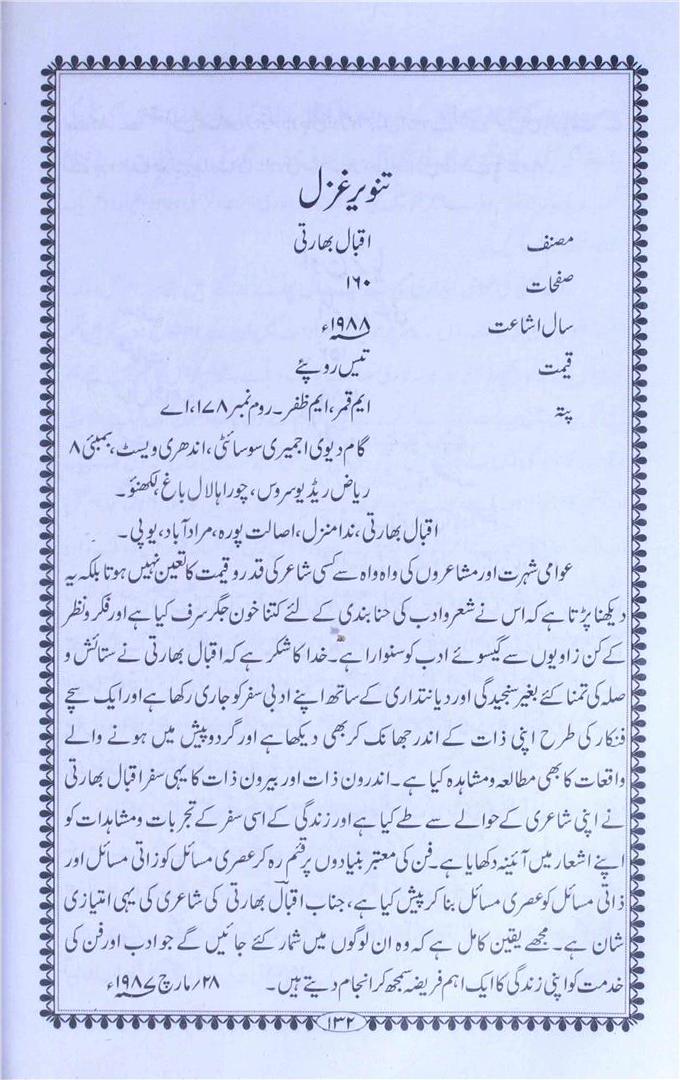 تنویر غزل
مصنف اقبال بھارتی
صفحات ۱۶۰
سال اشاعت ۱۹۸۸ء
قیمت تیس روپئے
پتہ ایم قمر، ایم ظفر۔ روم نمبر ۱۷۸، اے
گام دیوی اجمیری سوسائٹی، اندھری ویسٹ، بمبئی ۸
ریاض ریڈیو سروس، چوراہا لال باغ، لکھنؤ۔
اقبال بھارتی، ندا منزل، اصالت پورہ، مرادآباد، یوپی۔
عوامی شہرت اور مشاعروں کی واہ واہ سے کسی شاعر کی قدر و قیمت کا تعین نہیں ہوتا بلکہ یہ
دیکھنا پڑتا ہے کہ اس نے شعر و ادب کی حنا بندی کے لئے کتنا خون جگر سرف کیا ہے اور فکر و نظر
کے کن زاویوں سے گیسوئے ادب کو سنوارا ہے۔ خدا کا شکر ہے کہ اقبال بھارتی نے ستائش و
صلہ کی تمنا کئے بغیر سنجیدگی اور دیانتداری کے ساتھ اپنے ادبی سفر کو جاری رکھا ہے اور ایک سچے
فنکار کی طرح اپنی ذات کے اندر جھانک کر بھی دیکھا ہے اور گرد و پیش میں ہونے والے
واقعات کا بھی مطالعہ و مشاہدہ کیا ہے۔ اندرون ذات اور بیرون ذات کا یہی سفر اقبال بھارتی
نے اپنی شاعری کے حوالے سے طے کیا ہے اور زندگی کے اسی سفر کے تجربات و مشاہدات کو
اپنے اشعار میں آئینہ دکھایا ہے۔ فن کی معتبر بنیادوں پر قئم رہ کر عصری مسائل کو زاتی مسائل اور
ذاتی مسائل کو عصری مسائل بنا کر پیش کیا ہے، جناب اقبال بھارتی کی شاعری کی یہی امتیازی
شان ہے۔ مجھے یقین کامل ہے کہ وہ ان لوگوں میں شمار کئے جائیں گے جو ادب اور فن کی
خدمت کو اپنی زندگی کا ایک اہم فریضہ سمجھ کر انجام دیتے ہیں۔ ۲۸/مارچ ۱۹۸۷ء
۱۳۲